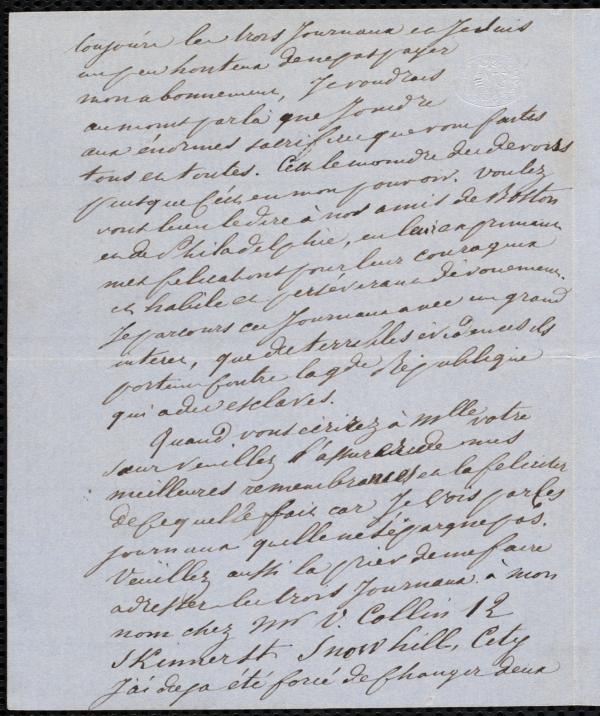 toujours les trois Journaux et Je suis
un peu honteux de ne pas payer
mon abonnement, Je voudrais
au moins par là que Joindre
aux énormes sacrifices que vous faites
tous et toutes. C'est le moindre des devoirs
puisque c'est en mon pouvoir. Voulez
vous bien le dire à nos amis de Boston
et de Philadelphie, en leur exprimant
mes felicitations pour leur courageux
et habile et persévérant dévouement.
Je parcours ces Journaux avec un grand
interet, que de terribles évidences ils
portent contre la gde République
qui a des esclaves.
Quand vous écrirez à Mlle votre
sœur veuillez l'assurer de mes
meilleures remembrances et la feliciter
de ce quelle fait car Je vois par les
journaux quelle ne s'épargne pas.
Veuillez aussi la prier de me faire
adresser les trois Journaux à mon
nom chez Mr V. Collin 12
Skinner St Snow hill, City
J'ai deja été forcé de changer deux